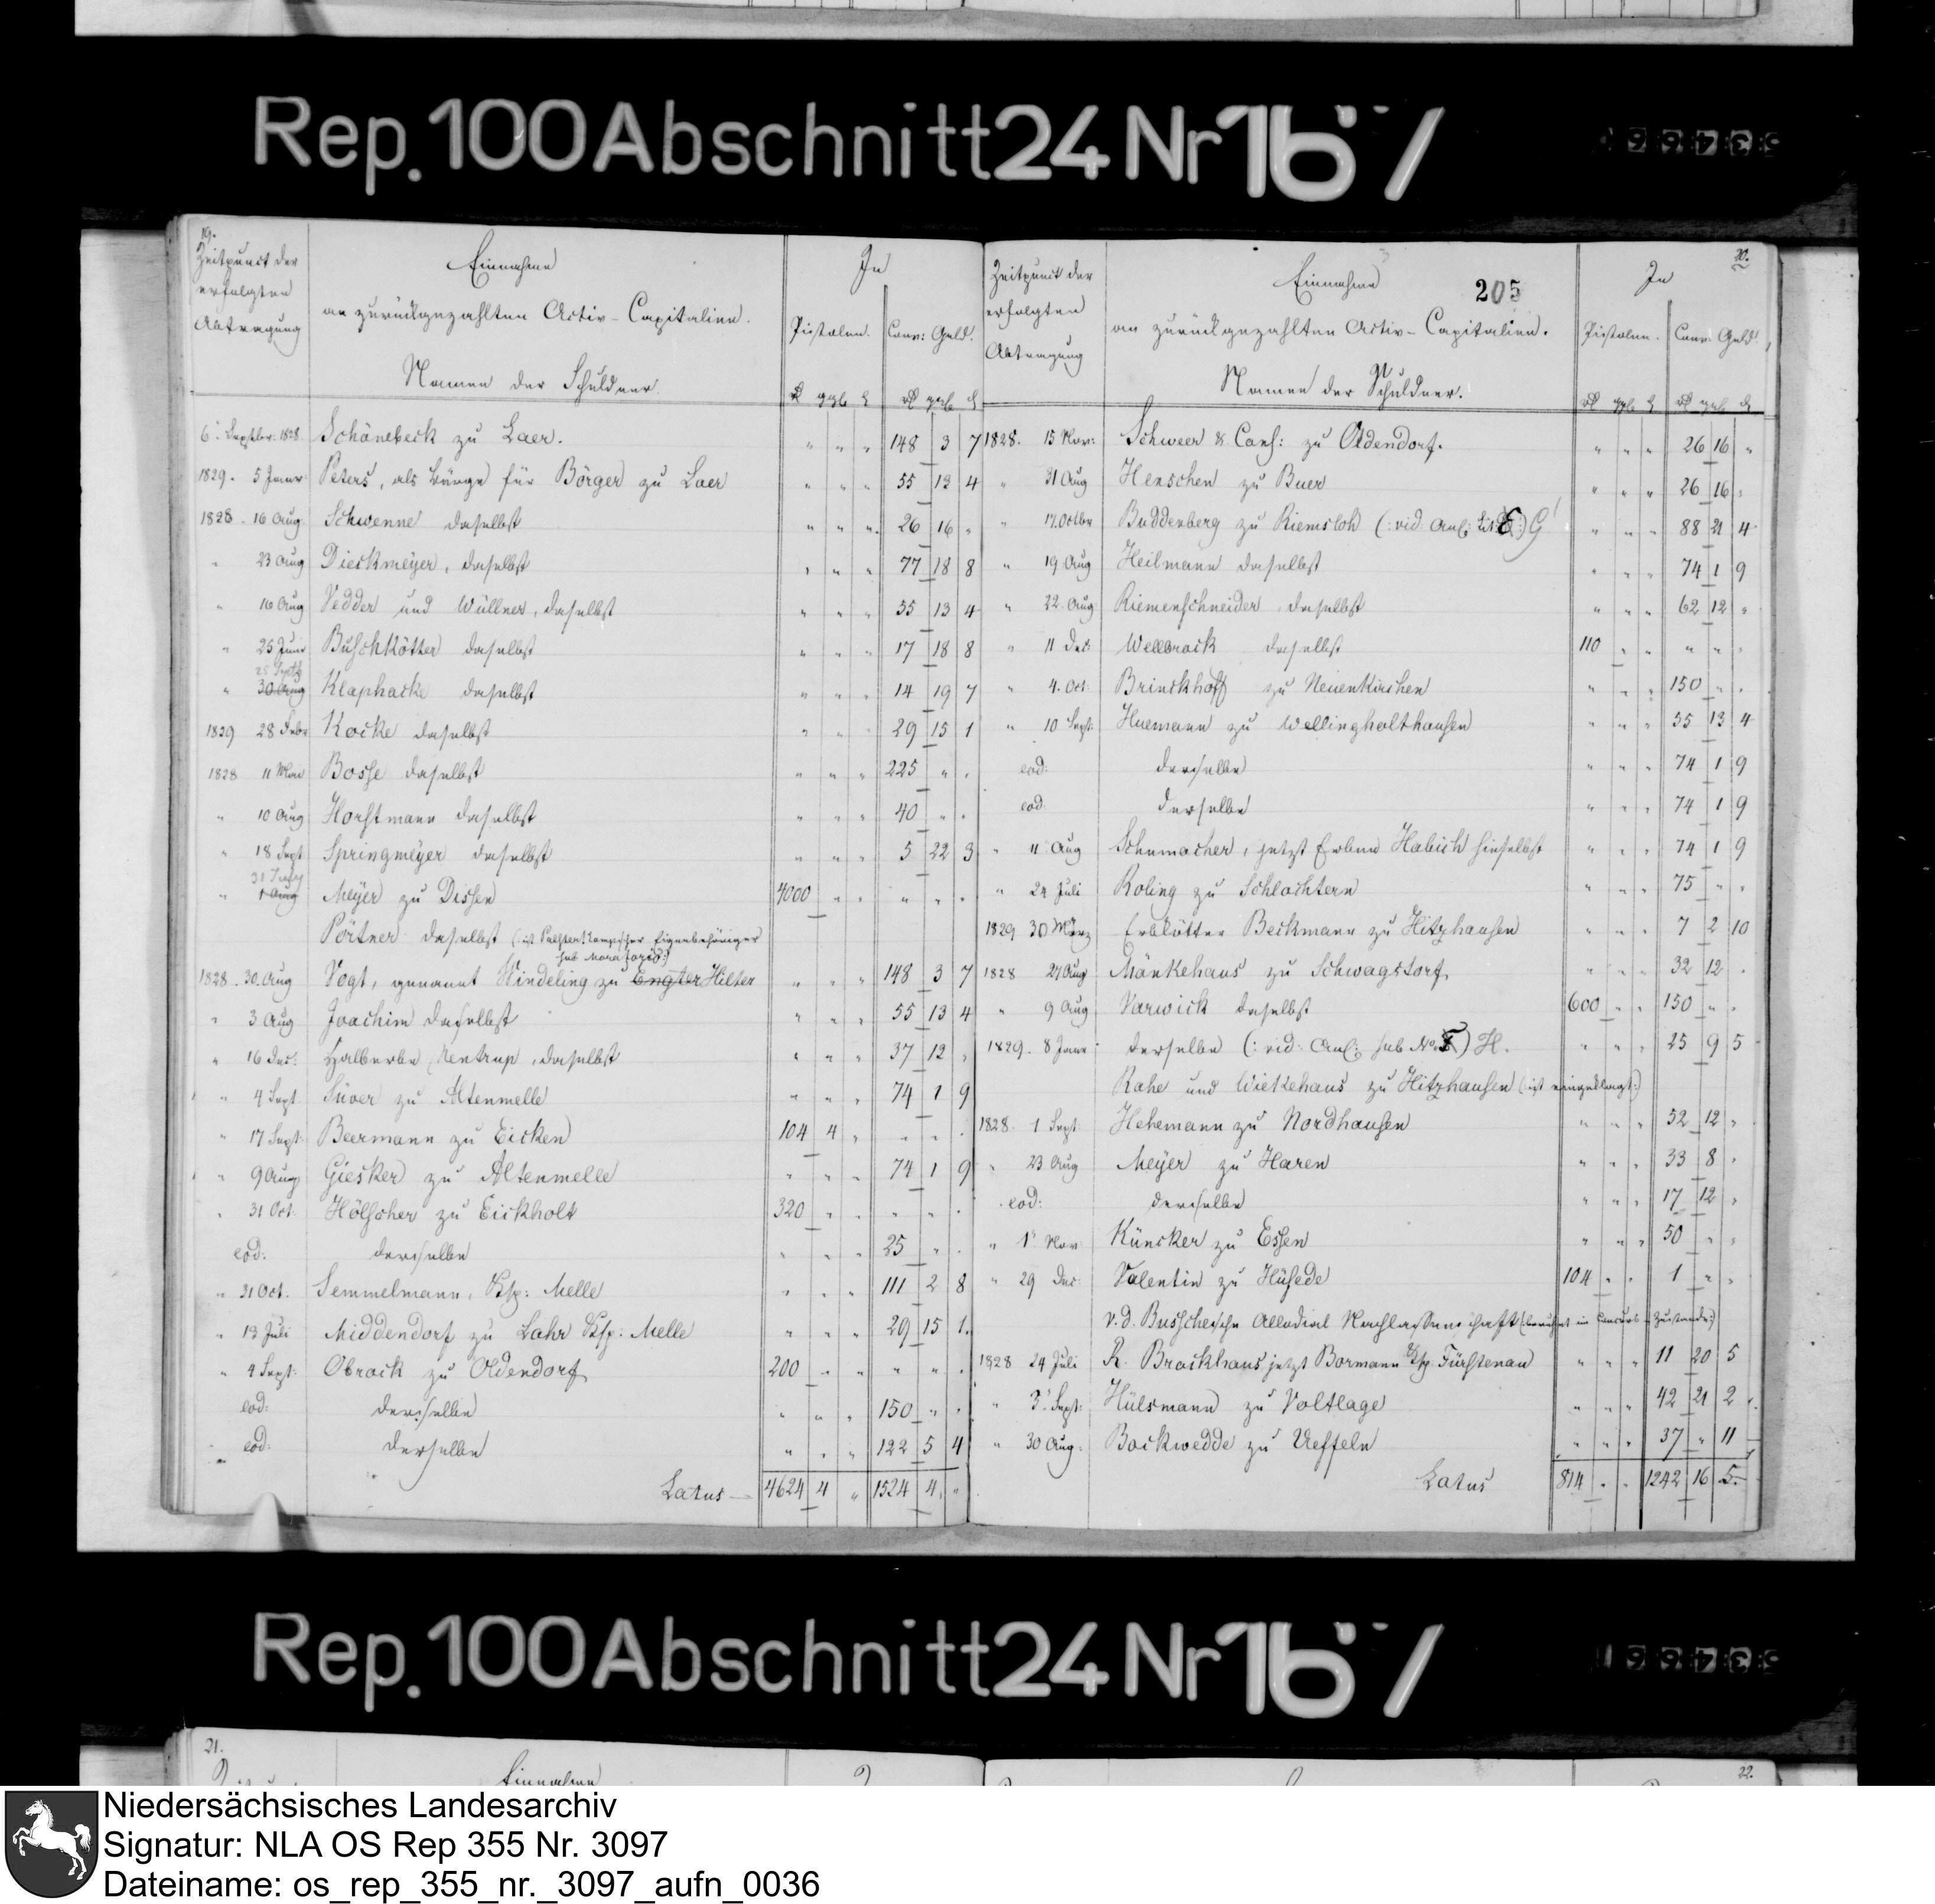 Rep. 100 Abschnitt 24 Nr 167
53466
19.
Zeitpunct der
erfolgten
Abtragung
Einnahme
an zurückgezahlten Activ-Capitalien.
Namen der Schuldner.
In
Pistolen. Conv: Geld.
6. Septbr. 1828. Schönebeck zu Laer. " " " 148 3 7
1829. 5 Januar Peters, als Bürge für Börger zu Laer " " " 55 13 4
1828. 16 Aug. Schwenne daselbst " " " 26 16 "
" 23 Aug Dieckmeyer, daselbst " " " 77 18 8
" 16 Aug Vedder und Wüllner, daselbst " " " 55 13 4
" 25 Juni Buschkötter daselbst " " " 17 18 8
25 Septb
" 30 Aug Klaphacke daselbst " " " 14 19 7
1829 28 Febr Kocke daselbst " " " 29 15 1
1828 11 Mai Bosse daselbst " " " 225 " "
" 10 Aug Horstmann daselbst " " " 40 " "
" 18 Sept Springmeyer daselbst " " " 5 22 3
31 July
" 1 Aug Meyer zu Dissen 4000 " " " " "
Pörtner daselbst (: ist Eigenbehöriger
sub Moratorio :)
1828. 30. Aug Vogt, genannt Windeling zu Engter Hilter " " " 148 3 7
" 3 Aug Joachim daselbst " " " 55 13 4
" 16 Dec: Halberbe Nentrup, daselbst " " " 37 12 "
" 4 Sept Süver zu Altenmelle " " " 74 1 9
" 17 Sept: Beermann zu Eicken 104 4 " " " "
" 9 Aug Giesker zu Altenmelle " " " 74 1 9
" 31 Oct: Hölscher zu Eickholt 320 " " " " "
eod: derselbe " " " 25 " "
" 31 Oct. Semmelmann, Ksp: Melle " " " 111 2 8
" 13 Juli Middendorf zu Lahr Ksp: Melle " " " 29 15 1.
" 4 Sept: Obrock zu Oldendorf 200 " " " " "
eod: derselbe " " " 150 " "
eod: derselbe " " " 122 5 4
Latus — 4624 4 " 1524 4 "
20.
205
Zeitpunct der
erfolgten
Abtragung
Einnahme
an zurückgezahlten Activ-Capitalien.
Namen der Schuldner.
In
Pistolen. Conv: Geld
1828. 15 Nov: Schweer & Cons: zu Oldendorf. " " " 26 16 "
" 31 Aug Henschen zu Buer " " " 26 16 "
" 17. Octbr Buddenberg zu Riemsloh (: vid: Anl: Lit: E :) G " " " 88 21 4
" 19 Aug Heilmann daselbst " " " 74 1 9
" 22. Aug Riemenschneider, daselbst " " " 62 12 "
" 11 Dec: Wellbrock daselbst 110 " " " " "
" 4. Oct: Brinckhoff zu Neuenkirchen " " " 150 " "
" 10 Sept: Huemann zu Wellingholthausen " " " 55 13 4
eod: derselbe " " " 74 1 9
eod: derselbe " " " 74 1 9
" 11 Aug Schumacher, jetzt Erben Habich hieselbst " " " 74 1 9
" 24 Juli Roling zu Schlochtern " " " 75 " "
1829 30 März Erbkötter Beckmann zu Hitzhausen " " " 7 2 10
1828 27 Aug Mönkehaus zu Schwagstorf " " " 32 12 "
" 9 Aug Varwick daselbst 600 " " 150 " "
1829. 8 Janr derselbe (: vid: Anl: sub No. F) H. " " " 25 9 5
Rahe und Wiekehaus zu Hitzhausen (: ist eingeklagt :)
1828. 1 Sept: Hehemann zu Nordhausen " " " 52 12 "
" 23 Aug Meyer zu Haren " " " 33 8 "
eod: derselbe " " " 17 12 "
" 1 Nov Küncker zu Essen " " " 50 " "
" 29 Dec: Valentin zu Hüsede 104 " " 1 " "
v. d. Busschesche Allodial Nachlassenschaft (: beruhet im Concurs Zustande :)
1828 24 Juli R. Brockhaus jetzt Bormann Ksp. Fürstenau " " " 11 20 5
" 3. Sept: Hülsmann zu Voltlage " " " 42 21 2
" 30 Aug: Bockwedde zu Ueffeln " " " 37 " 11
Latus 814 " " 1242 16 5.
Rep. 100 Abschnitt 24 Nr 167
53466
21.
Einnahme
22.
Niedersächsisches Landesarchiv
Signatur: NLA OS Rep 355 Nr. 3097
Dateiname: os_rep_355_nr._3097_aufn_0036